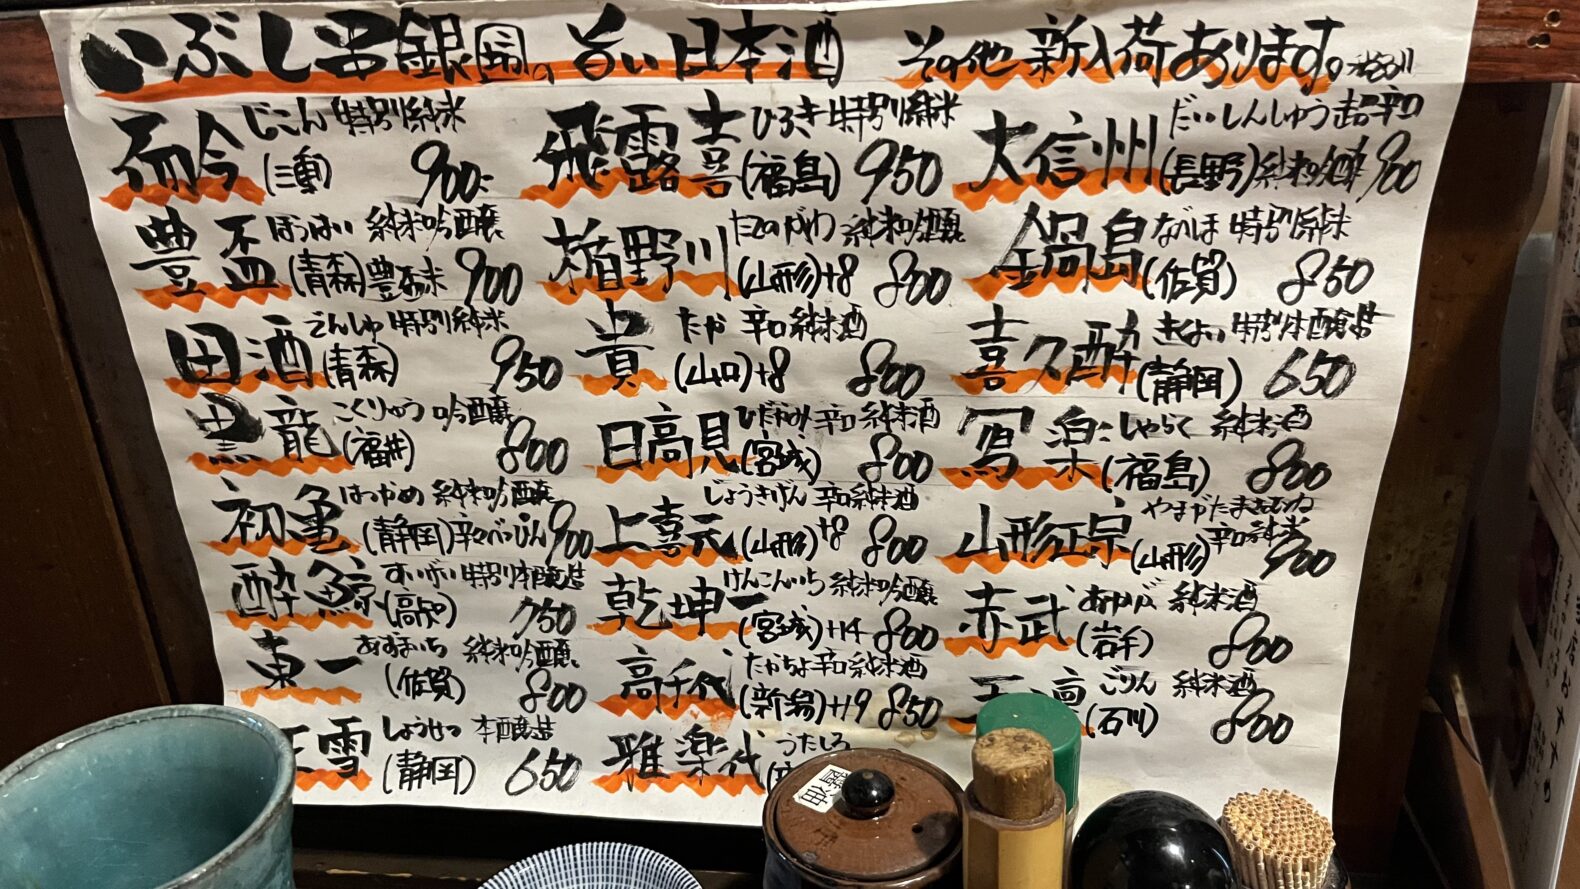 いぶし銀 旨い日本酒 その他新入荷あります。
而今 じこん 特別純米
(三重) 900
豊盃 ほうはい 純米吟醸
(青森) 豊盃米 900
田酒 でんしゅ 特別純米
(青森) 950
黒龍 こくりゅう 吟醸
(福井) 800
初亀 はつかめ 純米吟醸
(静岡) 辛口べっぴん 900
酔鯨 すいげい 特別本醸造
(高知) 750
東一 あずまいち 純米吟醸
(佐賀) 800
正雪 しょうせつ 本醸造
(静岡) 650
飛露喜 ひろき 特別純米
(福島) 950
楯野川 たてのがわ 純米吟醸
(山形)+8 800
貴 たか 辛口純米酒
(山口)+8 800
日高見 ひたかみ 辛口純米酒
(宮城) 800
上喜元 じょうきげん 辛口純米酒
(山形)+8 800
乾坤一 けんこんいち 純米吟醸
(宮城)+14 800
高千代 たかちよ 辛口純米酒
(新潟)+19 850
雅楽代 うたしろ
大信州 だいしんしゅう 超辛口
(長野) 純米吟醸 900
鍋島 なべしま 特別純米
(佐賀) 850
喜久酔 きくよい 特別本醸造
(静岡) 650
写楽 しゃらく 純米酒
(福島) 800
山形正宗 やまがたまさむね
(山形) 辛口純米 900
赤武 あかぶ 純米酒
(岩手) 800
五凛 ごりん 純米酒
(石川) 800
醤油